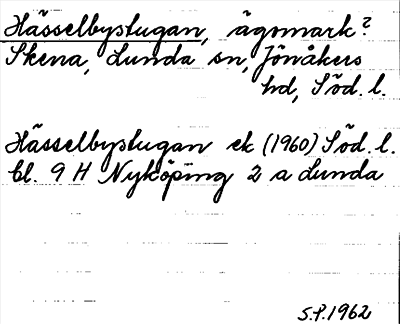 Hässelbystugan, ägomark?
Skena, Lunda sn, Jönåkers
hd, Söd. l.
Hässelbystugan ek (1960) Söd. l.
bl. 9 H Nyköping 2 a Lunda
S.P. 1962